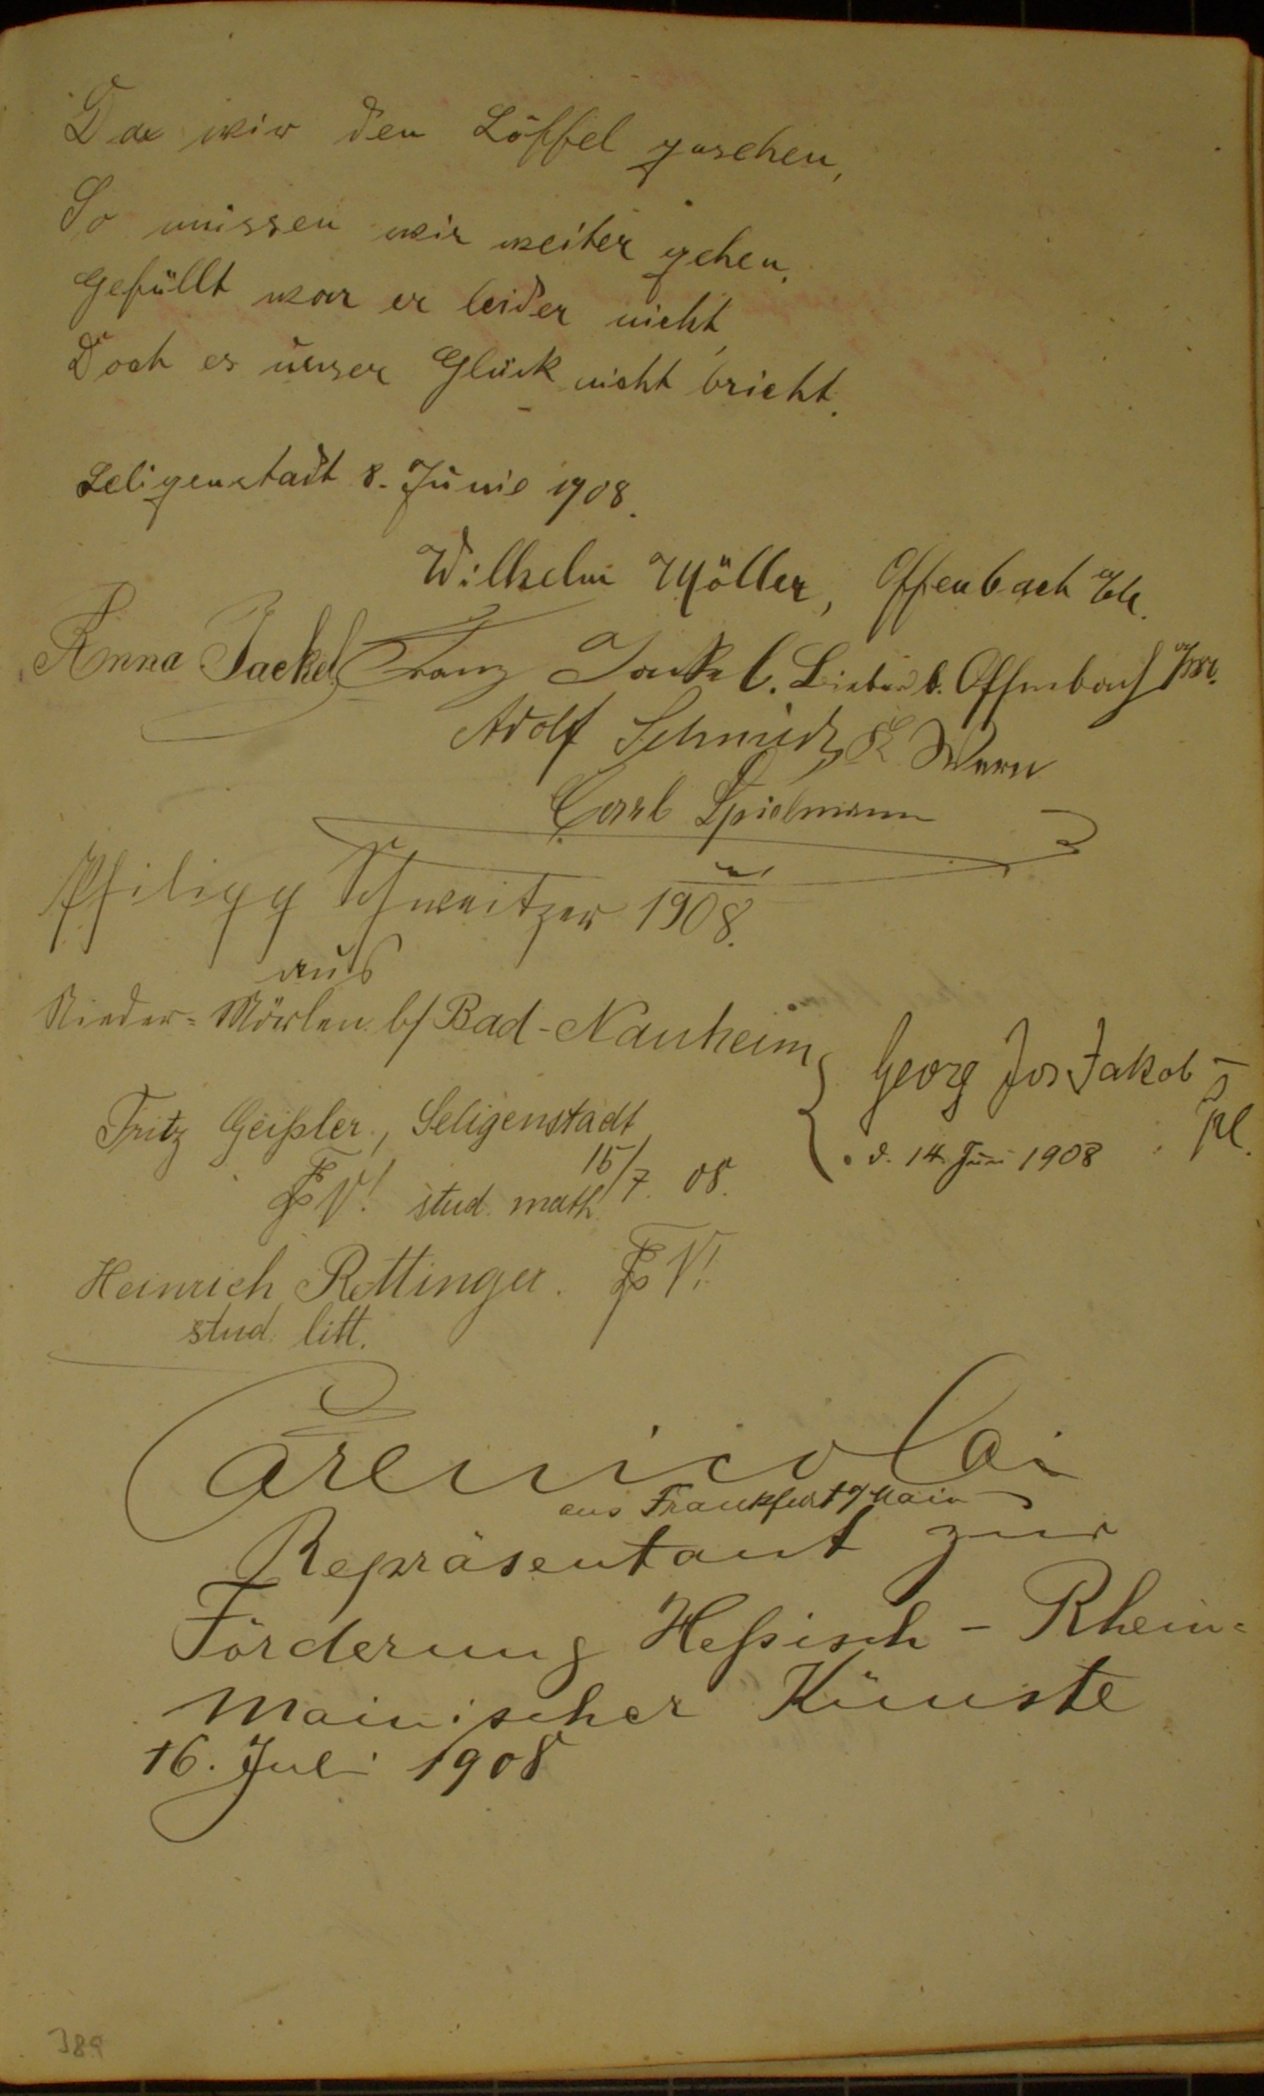 Da wir den Löffel gesehen,
So müssen wir weiter gehen.
Gefüllt war er leider nicht,
Doch es unser Glück nicht bricht.
Seligenstadt 8. Junie 1908.
Wilhelm Möller, Offenbach
Anna Jackel Franz Jackel. Bieber b. Offenbach
Adolf Schmidt K Wern
Carl Spielmann
Philipp Schweitzer 1908.
aus
Nieder-Mörlen b/ Bad-Nauheim
Georg Jos Jakob
d. 14. Juni 1908
Fritz Geißler, Seligenstadt
15/7. 08.
stud. math.
Heinrich Rettinger.
stud. litt.
aus Frankfurt Main
Repräsentant zur
Förderung Heßisch-Rhein-
mainischer Künste
16. Juli 1908
389